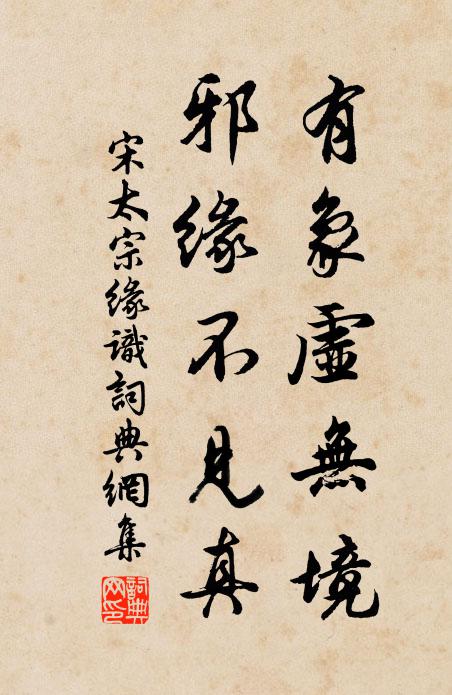 有象虛無境
邪緣不見真
宋太宗緣識詞典網集
詞典网印